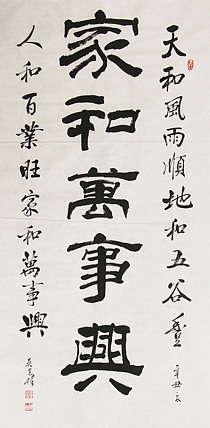 天和風雨順地和五谷豐
辛丑
家和萬事興
人和百業旺家和萬事興